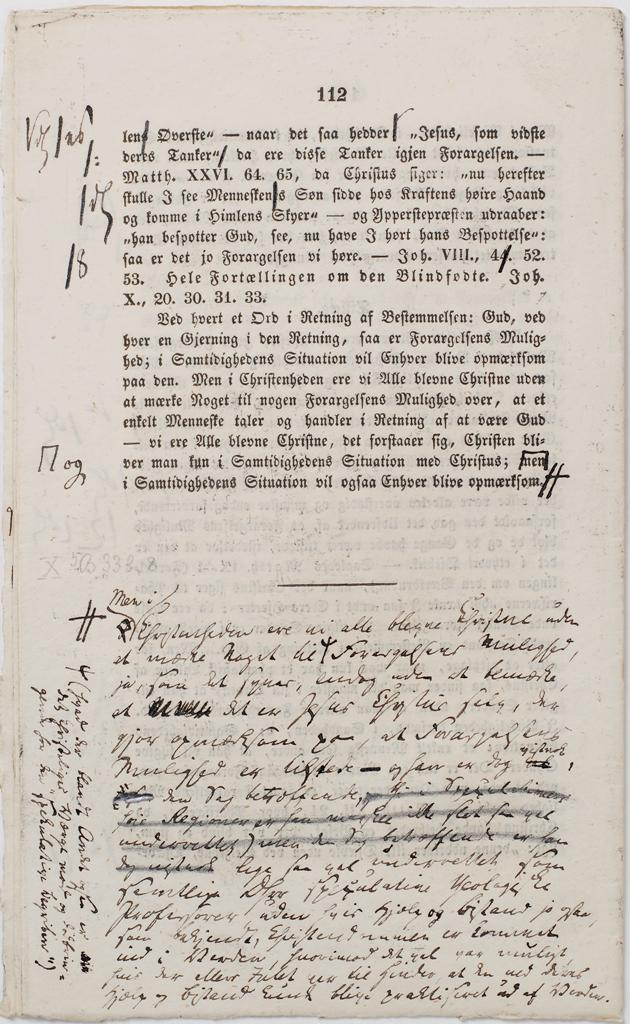 112
lens Øverste“ — naar det saa hedder „Jesus, som vidste
deres Tanker“ da ere disse Tanker igjen Forargelsen. —
Matth. XXVI. 64. 65, da Christus siger: „nu herefter
skulle I see Menneskens Søn sidde hos Kraftens høire Haand
og komme i Himlens Skyer“ — og Ypperstepræsten udraaber:
„han bespotter Gud, see, nu have I hørt hans Bespottelse“:
saa er det jo Forargelsen vi høre. — Joh. VIII., 52.
53. Hele Fortællingen om den Blindfødte. Joh.
X., 20. 30. 31. 33.
Ved hvert et Ord i Retning af Bestemmelsen: Gud, ved
hver en Gjerning i den Retning, saa er Forargelsens Mulig-
hed; i Samtidighedens Situation vil Enhver blive opmærksom
paa den. Men i Christenheden ere vi Alle blevne Christne uden
at mærke Noget til nogen Forargelsens Mulighed over, at et
enkelt Menneske taler og handler i Retning af at være Gud
— vi ere Alle blevne Christne, det forstaaer sig, Christen bli-
ver man kun i Samtidighedens Situation med Christus; men
i Samtidighedens Situation vil ogsaa Enhver blive opmærksom.
og
Men i
Christenheden ere vi alle blevne Christne uden
at mærke Noget til Forargelsens Mulighed,
ja, som det synes, endog uden at bemærke,
at det er Jesus Christus selv, der
gjør opmærksom paa, at Forargelsens
Mulighed er tilstede — og han er dog vistnok
den Sag betræffende,
lige saa vel underrettet som
samtlige speculative theologiske
Professorer uden hvis Hjælp og Bistand jo
som bekjendt, Christendommen er kommet
ind i Verden, hvorimod det vel var muligt,
hvis der ellers Intet var til Hinder at den ved deres
Hjælp og Bistand kunde blive praktiseret ud af Verden.